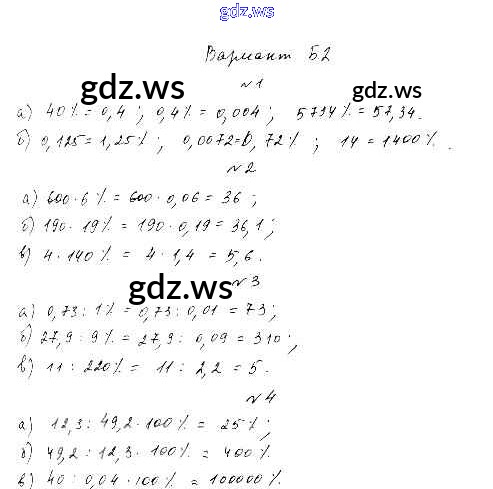 gdz.ws
Вариант Б2
№1
gdz.ws gdz.ws
а) 40% = 0,4 ; 0,4% = 0,004 ; 5734% = 57,34.
б) 0,125 = 1,25% ; 0,0072 = 0,72% ; 14 = 1400% .
№2
а) 600 · 6% = 600 · 0,06 = 36 ;
б) 190 · 19% = 190 · 0,19 = 36,1 ;
в) 4 · 140% = 4 · 1,4 = 5,6.
gdz.ws
№3
а) 0,73 : 1% = 0,73 : 0,01 = 73 ;
б) 27,9 : 9% = 27,9 : 0,09 = 310 ;
в) 11 : 220% = 11 : 2,2 = 5.
№4
а) 12,3 : 49,2 · 100% = 25% ;
б) 49,2 : 12,3 · 100% = 400%
в) 40 : 0,04 · 100% = 100000%.